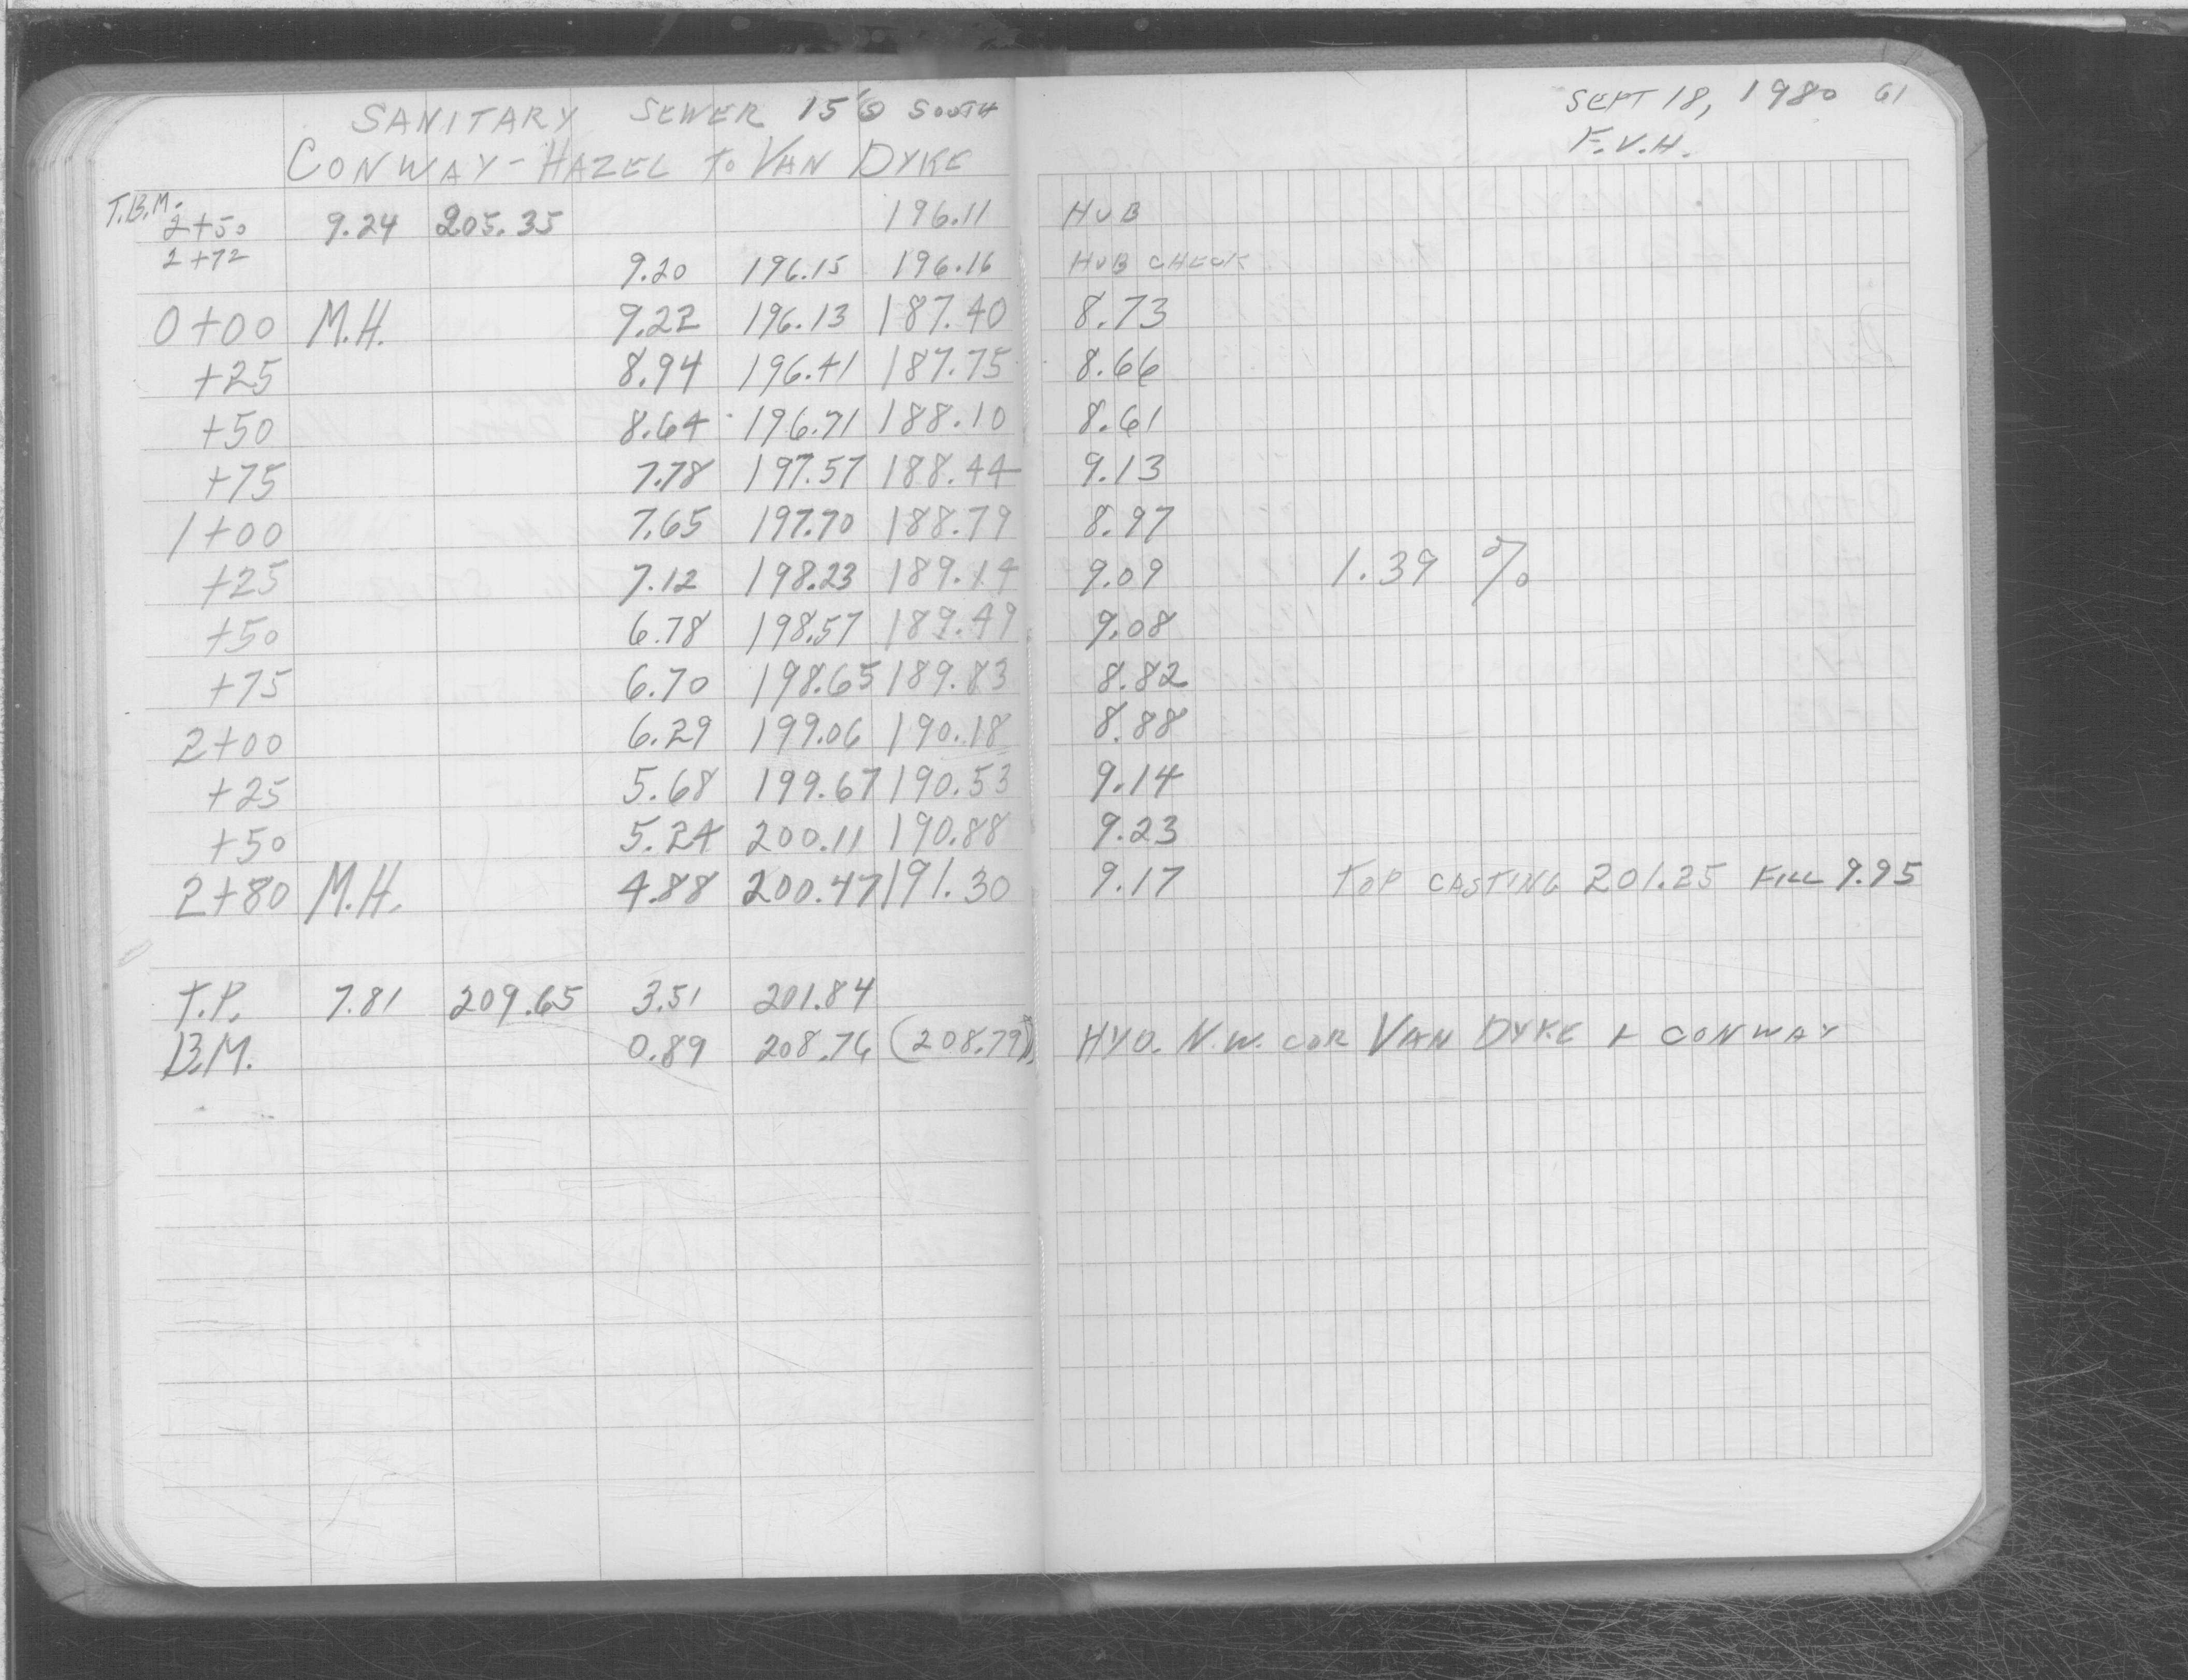 SANITARY SEWER 15' S SOUTH
CONWAY - HAZEL TO VAN DYKE
SEPT 18, 1980 61
F.V.H.
T.B.M.
2+50 9.24 205.35 196.11 HUB
2+72 9.20 196.15 196.16 HUB CHECK
0+00 M.H. 9.22 196.13 187.40 8.73
+25 8.94 196.41 187.75 8.66
+50 8.64 196.71 188.10 8.61
+75 7.78 197.57 188.44 9.13
1+00 7.65 197.70 188.79 8.97
+25 7.12 198.23 189.14 9.09 1.39 %
+50 6.78 198.57 189.49 9.08
+75 6.70 198.65 189.83 8.82
2+00 6.29 199.06 190.18 8.88
+25 5.68 199.67 190.53 9.14
+50 5.24 200.11 190.88 9.23
2+80 M.H. 4.88 200.47 191.30 9.17 TOP CASTING 201.25 FILL 9.95
T.P. 7.81 209.65 3.51 201.84
B.M. 0.89 208.76 (208.79) HYD. N.W. COR VAN DYKE + CONWAY